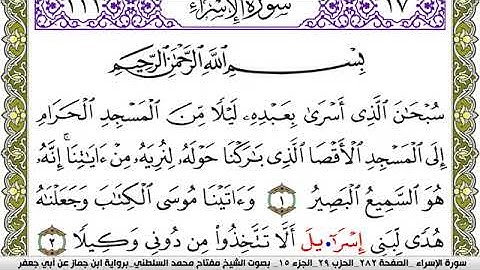 ١١١ سُورَةُ الإِسْرَاءِ ١٧
بِسْمِ اللَّهِ الرَّحْمَنِ الرَّحِيمِ
سُبْحَانَ الَّذِي أَسْرَى بِعَبْدِهِ لَيْلًا مِّنَ الْمَسْجِدِ الْحَرَامِ
إِلَى الْمَسْجِدِ الْأَقْصَا الَّذِي بَارَكْنَا حَوْلَهُ لِنُرِيَهُ مِنْ ءَايَاتِنَا إِنَّهُ
هُوَ السَّمِيعُ الْبَصِيرُ ١ وَءَاتَيْنَا مُوسَى الْكِتَابَ وَجَعَلْنَاهُ
هُدًى لِّبَنِي إِسْرَاءِيلَ أَلَّا تَتَّخِذُوا مِن دُونِي وَكِيلًا ٢
سورة الإسراء _ الصفحة ٢٨٢_ الحزب ٢٩_ الجزء ١٥ _ بصوت الشيخ مفتاح محمد السلطني_برواية ابن جماز عن أبي جعفر